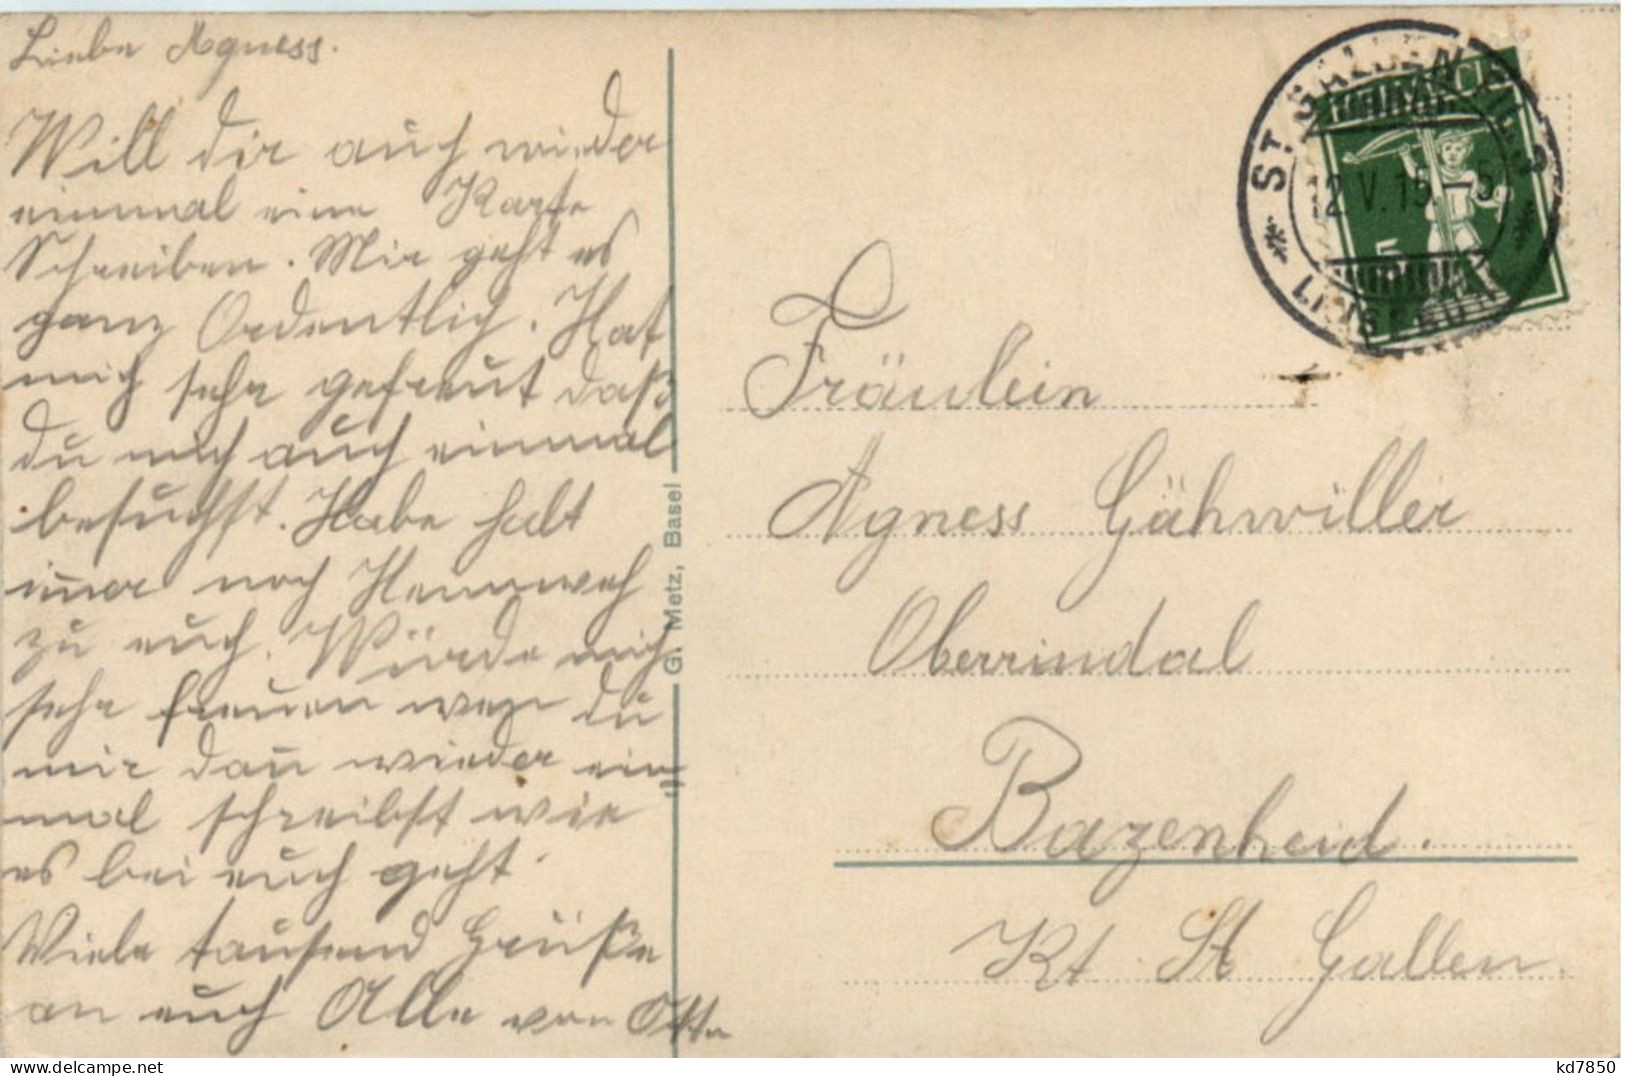 Liebe Agness.
Will dir auch wieder
einmal eine Karte
Schreiben. Mir geht es
ganz Ordentlich. Hat
mich sehr gefreut daß
du mich auch einmal
besuchst. Habe halt
im̄er noch Heimweh
zu euch. Würde mich
sehr freuen wen du
mir dan̄ wieder ein=
mal schreibst wie
es bei euch geht.
Viele tausend Grüße
an euch Alle von
G. Metz, Basel
ST. GALLEN
12.V.15.-5
5
Fräulein
Agness Gähwiller
Oberrindal
Bazenheid.
Kt. St Gallen.
kd7850